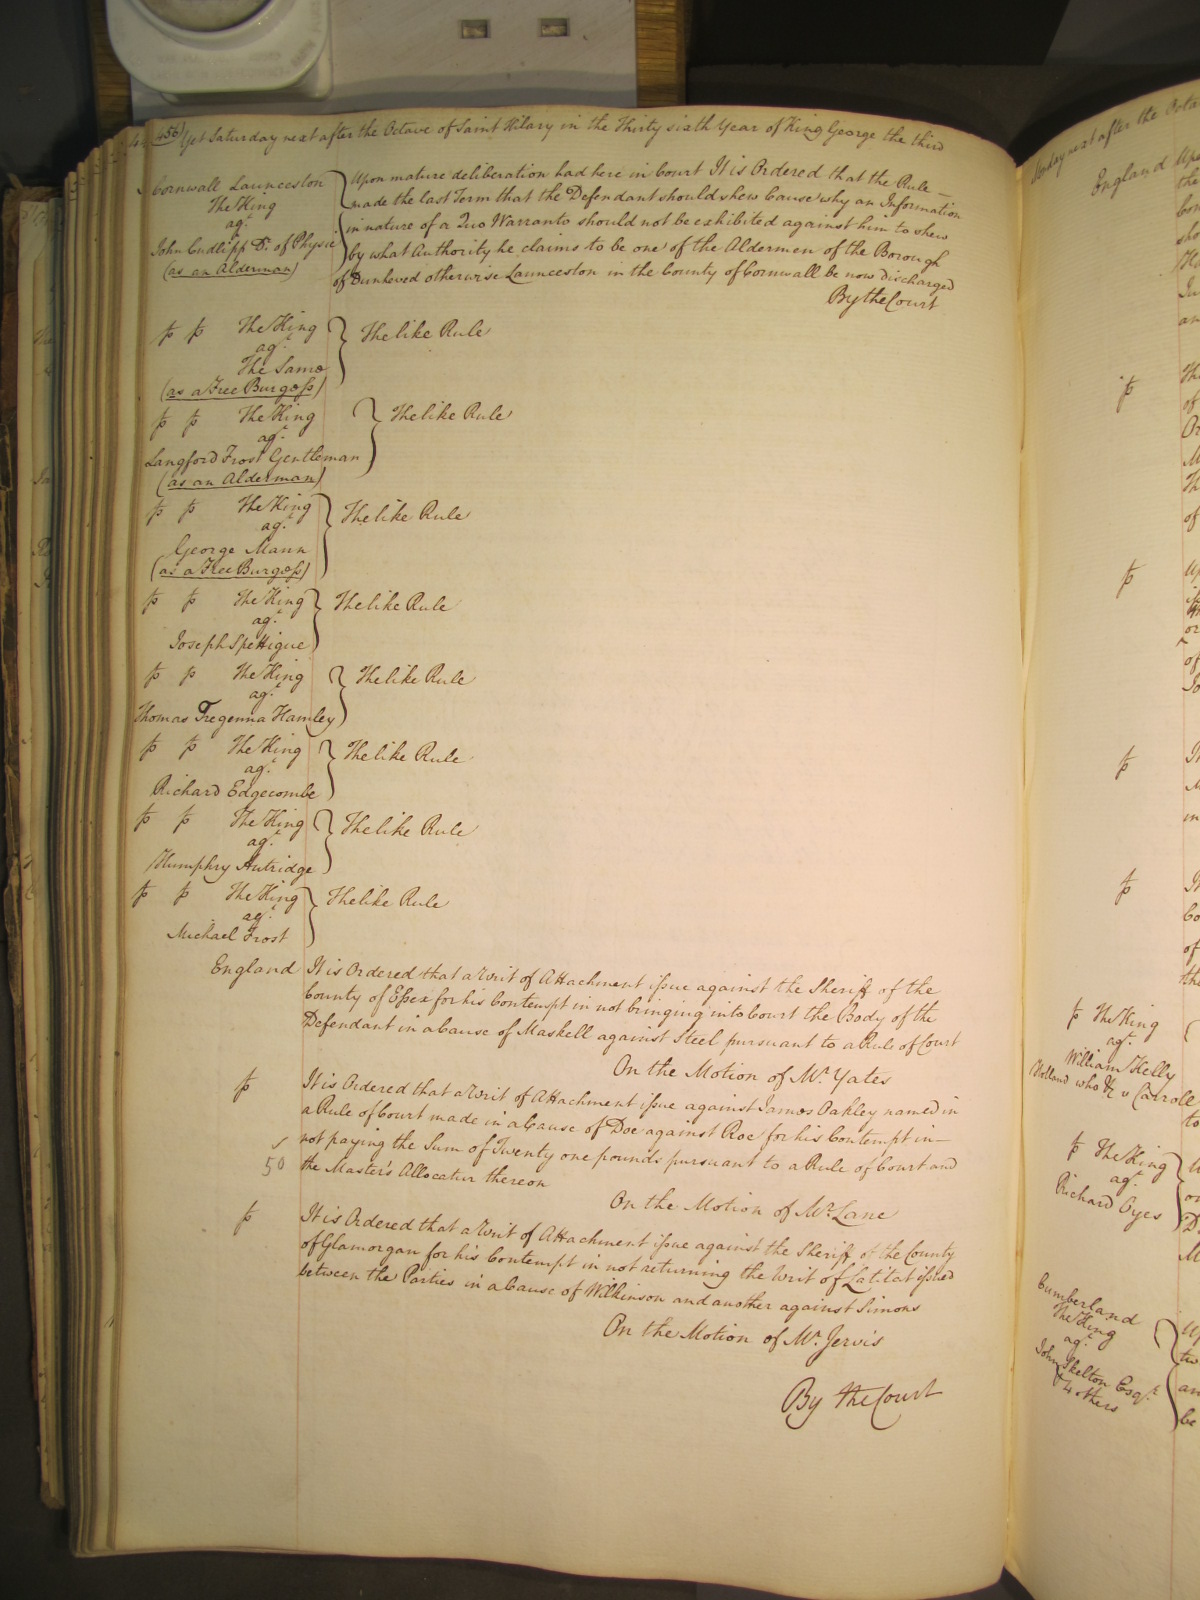 456 Yet Saturday next after the Octave of Saint Hilary in the Thirty sixth Year of King George the third
Cornwall Launceston
The King
agt.
John Cudlipp Dr. of Physic
(as an Alderman)
Upon mature deliberation had here in Court It is Ordered that the Rule
made the last Term that the Defendant should shew Cause why an Information
in nature of a Quo Warranto should not be exhibited against him to shew
by what Authority he claims to be one of the Aldermen of the Borough
of Dunheved otherwise Launceston in the County of Cornwall be now discharged
By the Court
The King
agt.
The Same
(as a Free Burgess)
The like Rule
The King
agt.
Langford Frost Gentleman
(as an Alderman)
The like Rule
The King
agt.
George Mann
(as a Free Burgess)
The like Rule
The King
agt.
Joseph Spettigue
The like Rule
The King
agt.
Thomas Tregenna Hamley
The like Rule
The King
agt.
Richard Edgecombe
The like Rule
The King
agt.
Humphry
The like Rule
The King
agt.
Michael Frost
The like Rule
England It is Ordered that a Writ of Attachment issue against the Sheriff of the
County of Essex for his Contempt in not bringing into Court the Body of the
Defendant in a Cause of Maskell against Steel pursuant to a Rule of Court
On the Motion of Mr. Yates
It is Ordered that a Writ of Attachment issue against James Oakley named in
a Rule of Court made in a Cause of Doe against Roe for his Contempt in
not paying the Sum of Twenty one pounds pursuant to a Rule of Court and
50 the Master's Allocatur thereon
On the Motion of Mr. Lane
It is Ordered that a Writ of Attachment issue against the Sheriff of the County
of Glamorgan for his Contempt in not returning the Writ of Latitat issued
between the Parties in a Cause of Wilkinson and another against Simons
On the Motion of Mr. Jervis
By the Court
next after the
England
The King
agt.
William Kelly
The King
agt.
Richard Oyes
Cumberland
The King
agt.
John Skelton Esqr.
& 4 others